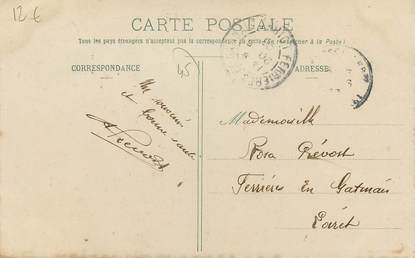 12 €
CARTE POSTALE
Tous les pays étrangers n'acceptent pas la correspondance au recto (Se renseigner à la Poste)
CORRESPONDANCE
ADRESSE
45
FERRIERES
Un souvenir
et bonne santé
A Prévost
Mademoiselle
Rosa Prévost
Ferrières en Gatinais
Loiret